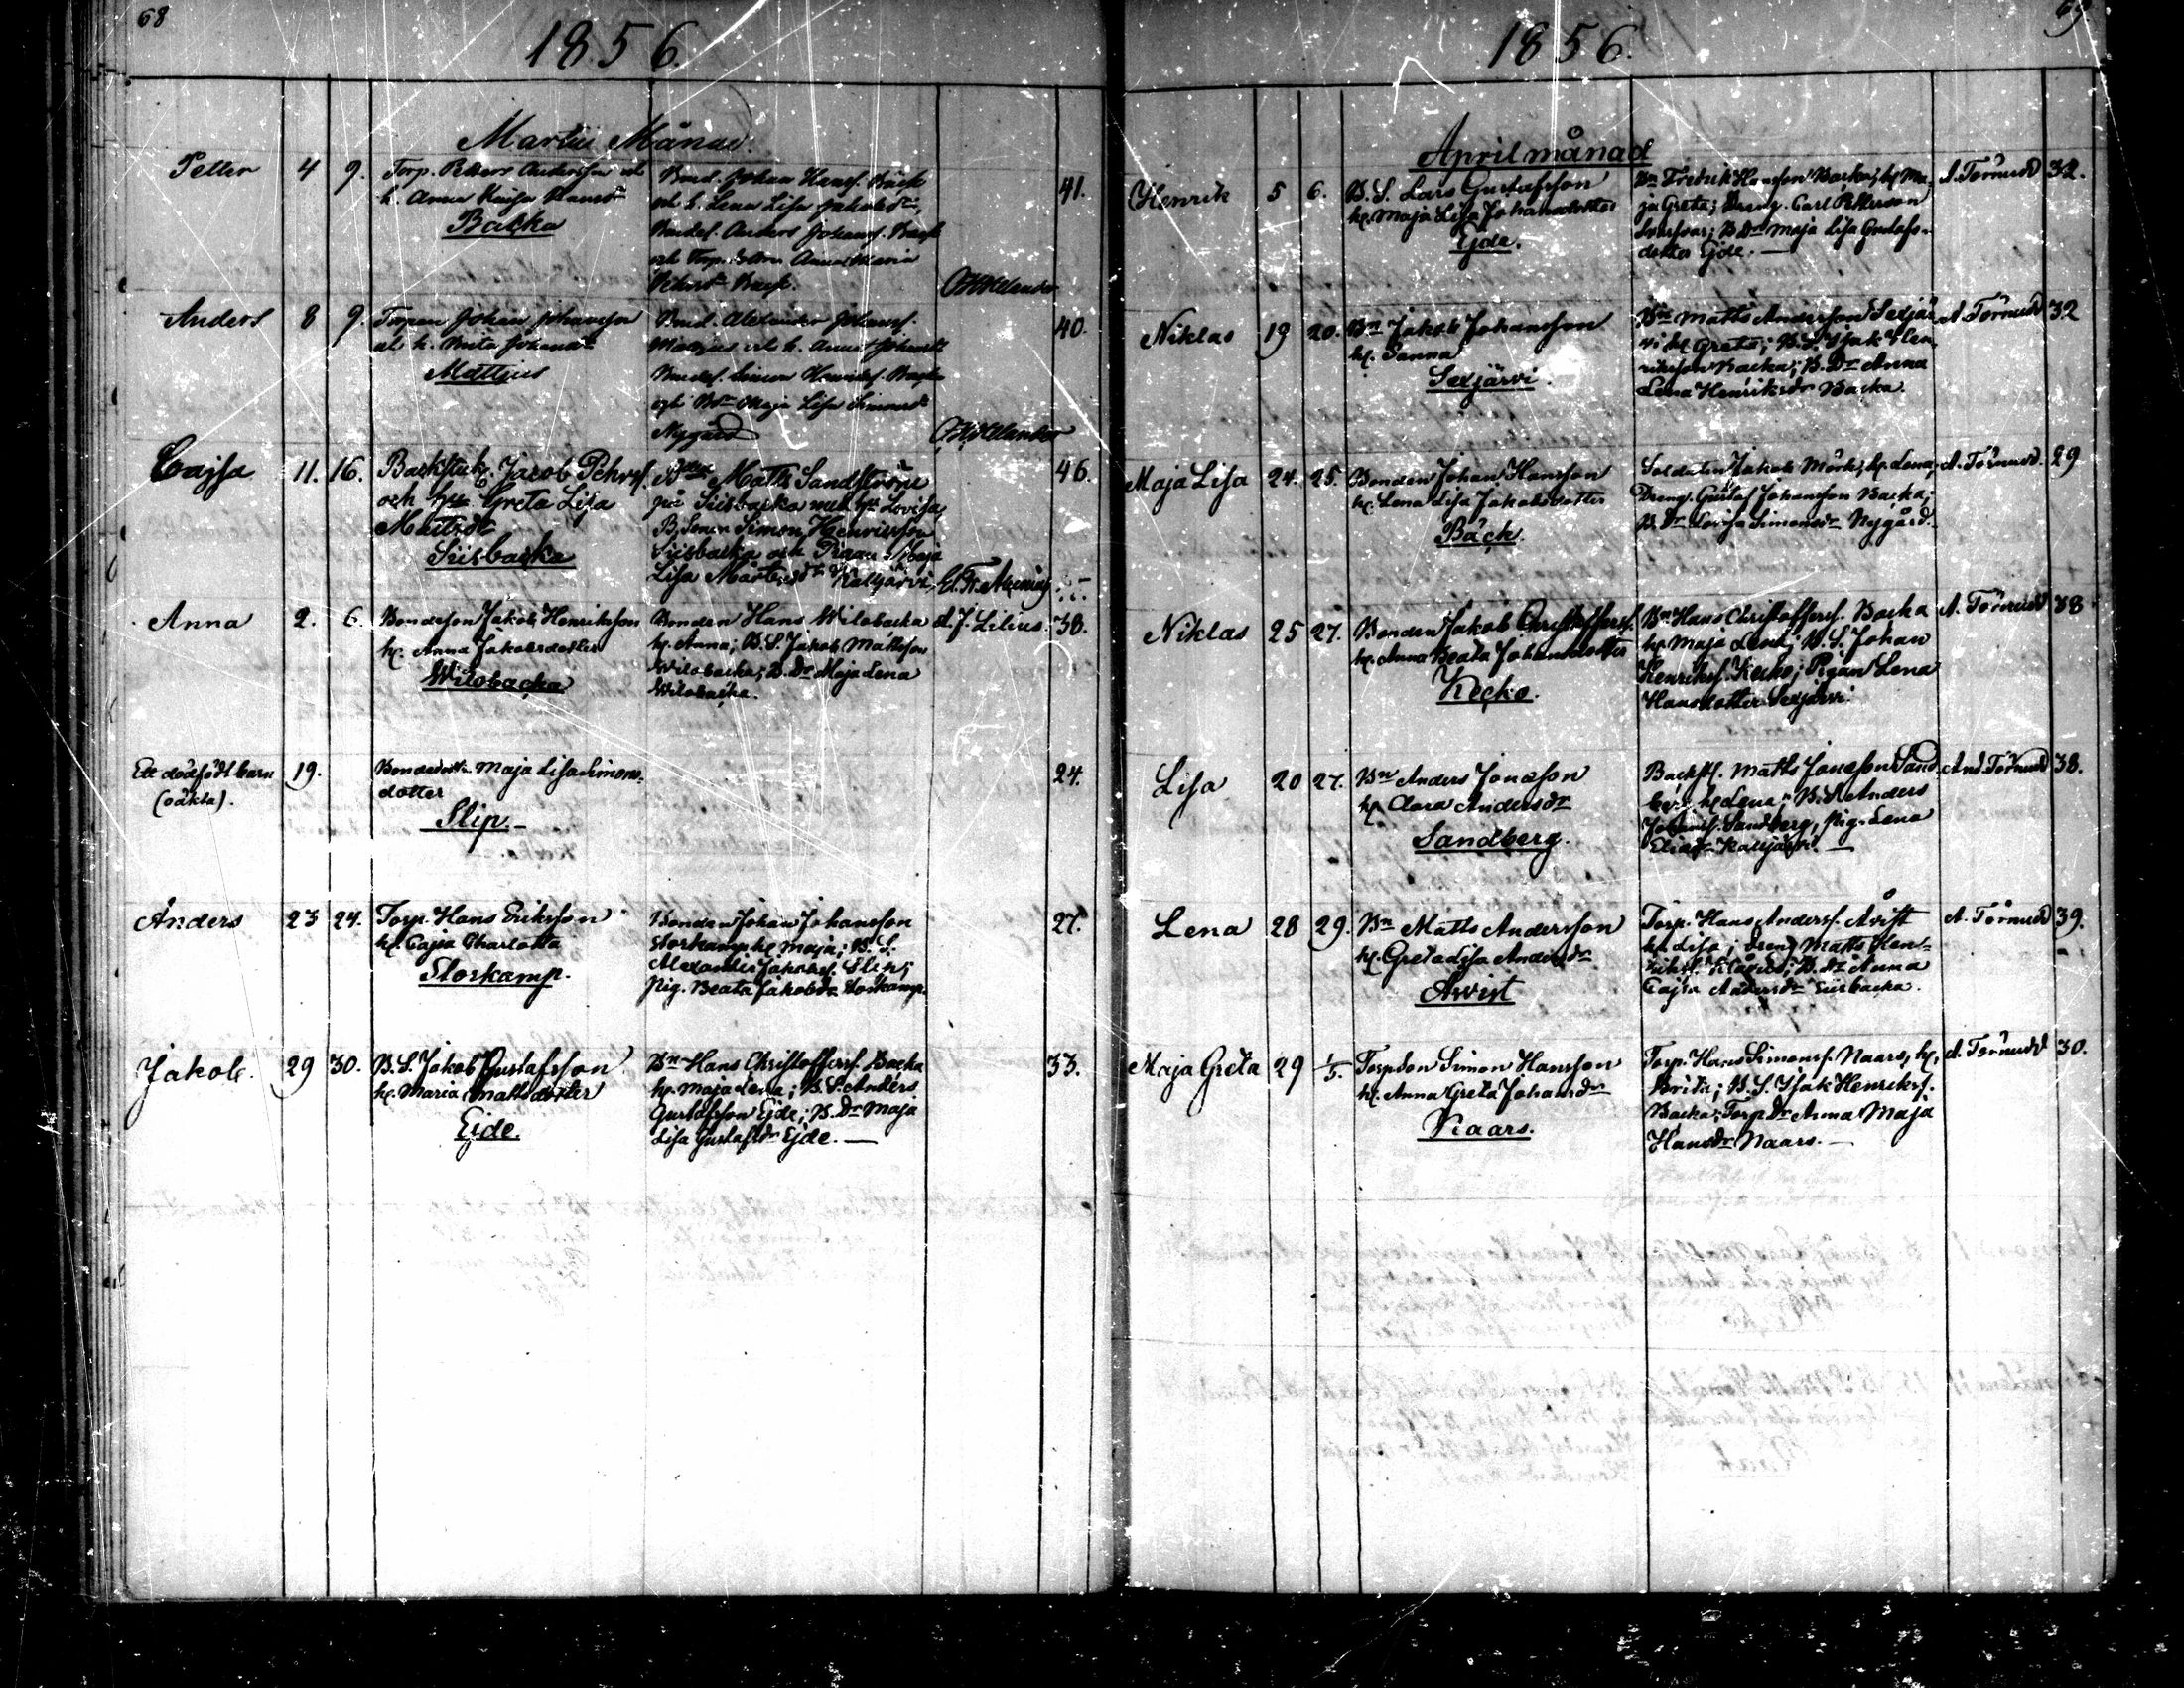 68
1856.
Martii Månad.
Petter 4 9. Torp. Petter Andersson och
h. Anna Kaisa Hansdr
Backa
Bond. Johan Hanss. Bäck
och h. Lena Lisa Jakobsdr,
Bondes. Anders Johanss. Back
och Torp. Anna Maria
Petersdr Back.
41.
Anders 8 9. Torparen Johan Johansson
och h. Brita Johansdr
Mattjus
Bond. Alexander Johanss.
Mattjus och h. Anna Johansdr
Bondes. Simon Henrikss. Backa
och Bdr Maja Lisa Simonsdr
Nygård
40.
Cajsa 11. 16. Backstuk. Jacob Pehrss.
och hu Greta Lisa
Mattsdr
Siisbacka
Matts Sandström
på Siisbacka med hu Lovisa,
B.Sonen Simon Henricsson
Siisbacka och Pigan Maja
Lisa Mårtensdr Kalljärvi,
46.
Anna 2. 6. Bondeson Jakob Henriksson
h. Anna Jakobsdotter
Wilobacka
Bonden Hans Wilobacka
h. Anna; B.S. Jakob Mattsson
Wilobacka; B.Dr Maja Lena
Wilobacka.
A. J. Lilius. 38.
Ett dödfödt barn
(oäkta).
19. Bondedottr. Maja Lisa Simons-
dotter
Slip.
24.
Anders 23 24. Torp. Hans Eriksson
h. Cajsa Charlotta
Storkamp.
Bonden Johan Johansson
Storkamp h. Maja; B.S.
Alexander Jakobss. Slip;
pig. Beata Jakobsdr Storkamp.
27.
Jakob. 29 30. B.S. Jakob Gustafsson
h. Maria Mattsdotter
Ejde.
Bn Hans Christofferss. Backa
h. Maja Lena; B.S. Anders
Gustafsson Ejde; B.Dr Maja
Lisa Gustafsdr Ejde.
33.
69
1856.
April månad
Henrik 5 6. B.S. Lars Gustafsson
h. Maja Lisa Johansdotter
Ejde.
Bn Fredrik Hansson Backa, h. Ma-
ja Greta; Dreng. Carl Pettersson
B.Dr Maja Lisa Gustafs-
dotter Ejde.
A. Törnudd 32.
Niklas 19 20. Bn Jakob Johansson
h. Sanna
Sexjärvi.
Bn Matts Andersson Sexjär-
vi h. Greta; B.S. Isak Hen-
riksson Backa; B.Dr Anna
Lena Henriksdr Backa.
A. Törnudd 32
Maja Lisa 24. 25. Bonden Johan Hansson
h. Lena Lisa Jakobsdotter
Bäck.
Soldaten Jakob Mörk, h. Lena;
Dreng. Gustaf Johansson Backa;
B.Dr Lovisa Simonsdr Nygård.
A. Törnudd. 29
Niklas 25 27. Bonden Jakob Christofferss.
h. Anna Beata Johansdotter
Kecko.
Bn Hans Christofferss. Backa
h. Maja Lena; B.S. Johan
Henrikss. Kecko; Pigan Lena
Hansdotter Sexjärvi.
A. Törnudd 38
Lisa 20 27. Bn Anders Jonasson
h. Clara Andersdr
Sandberg.
Backsts. Matts Jonasson Sand-
berg, h. Lena; B.S. Anders
Johanss. Sandberg, pig. Lena
Eliasdr Kalljärvi.
And. Törnudd 38.
Lena 28 29. Bn Matts Andersson
h. Greta Lisa Andersdr
Arvist
Torp. Hans Anderss. Åvist
h. Lisa; dreng Matts Hen-
rikss. B.Dr Anna
Cajsa Andersdr Siisbacka.
A. Törnudd 39.
Maja Greta 29 1/5. Torp.son Simon Hansson
h. Anna Greta Johansdr
Naars.
Torp. Hans Simonss. Naars, h.
Brita; B.S. Isak Henrikss.
Backa; Torp.Dr Anna Maja
Hansdr Naars.
A. Törnudd 30.